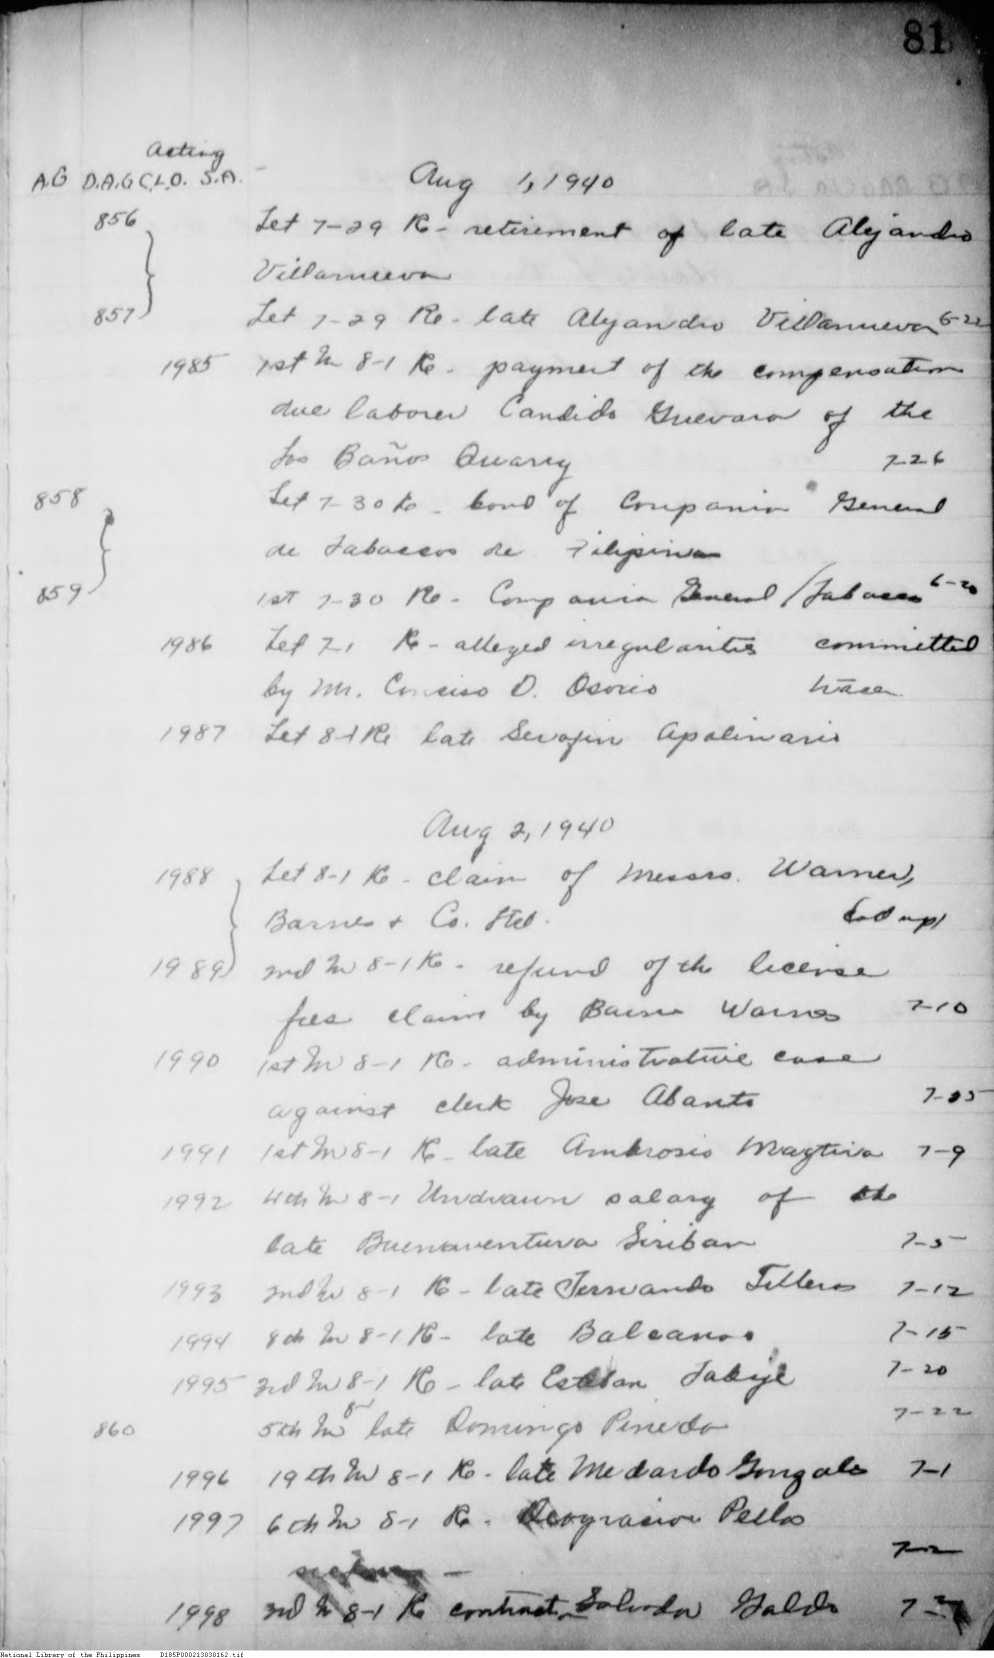 81
Acting
A.G D.A.G C.L.O. S.A.
Aug 1, 1940
856 Let 7-29 Re - retirement of late Alejandro
Villanueva
857 Let 7-29 Re - late Alejandro Villanueva 6-22
1985 1st In 8-1 Re - payment of the compensation
due laborer Candido Guevara of the
Los Baños Quarry 7-26
858 Let 7-30 Re - bond of Compania General
de Tabacos de Filipinas
859 1st 7-30 Re - Compania General / Tabacos 6-20
1986 Let 7-1 Re - alleged irregularities committed
by Mr. D. Osorio
1987 Let 8-1 Re late Serafin Apolinario
Aug 2, 1940
1988 Let 8-1 Re - claim of Messrs. Warner,
Barnes & Co. Ltd.
1989 2nd In 8-1 Re - refund of the license
fees claim by Barnes Warnes 7-10
1990 1st In 8-1 Re - administrative case
against clerk Jose Abanto 7-25
1991 1st In 8-1 Re - late Ambrosio Magtira 7-9
1992 4th In 8-1 Undrawn salary of the
late Buenaventura Siriban 7-5
1993 2nd In 8-1 Re - late Fernando Tilleros 7-12
1994 8th In 8-1 Re - late Balcanos 7-15
1995 3rd In 8-1 Re - late Esteban 7-20
860 5th In 8-1 late Domingo Pineda 7-22
1996 19th In 8-1 Re - late Medardo Gonzales 7-1
1997 6th In 8-1 Re - Deogracias Pellos
7-2
1998 3rd In 8-1 Re contract - Salvador Galdo
National Library of the Philippines D185P000213030162.tif